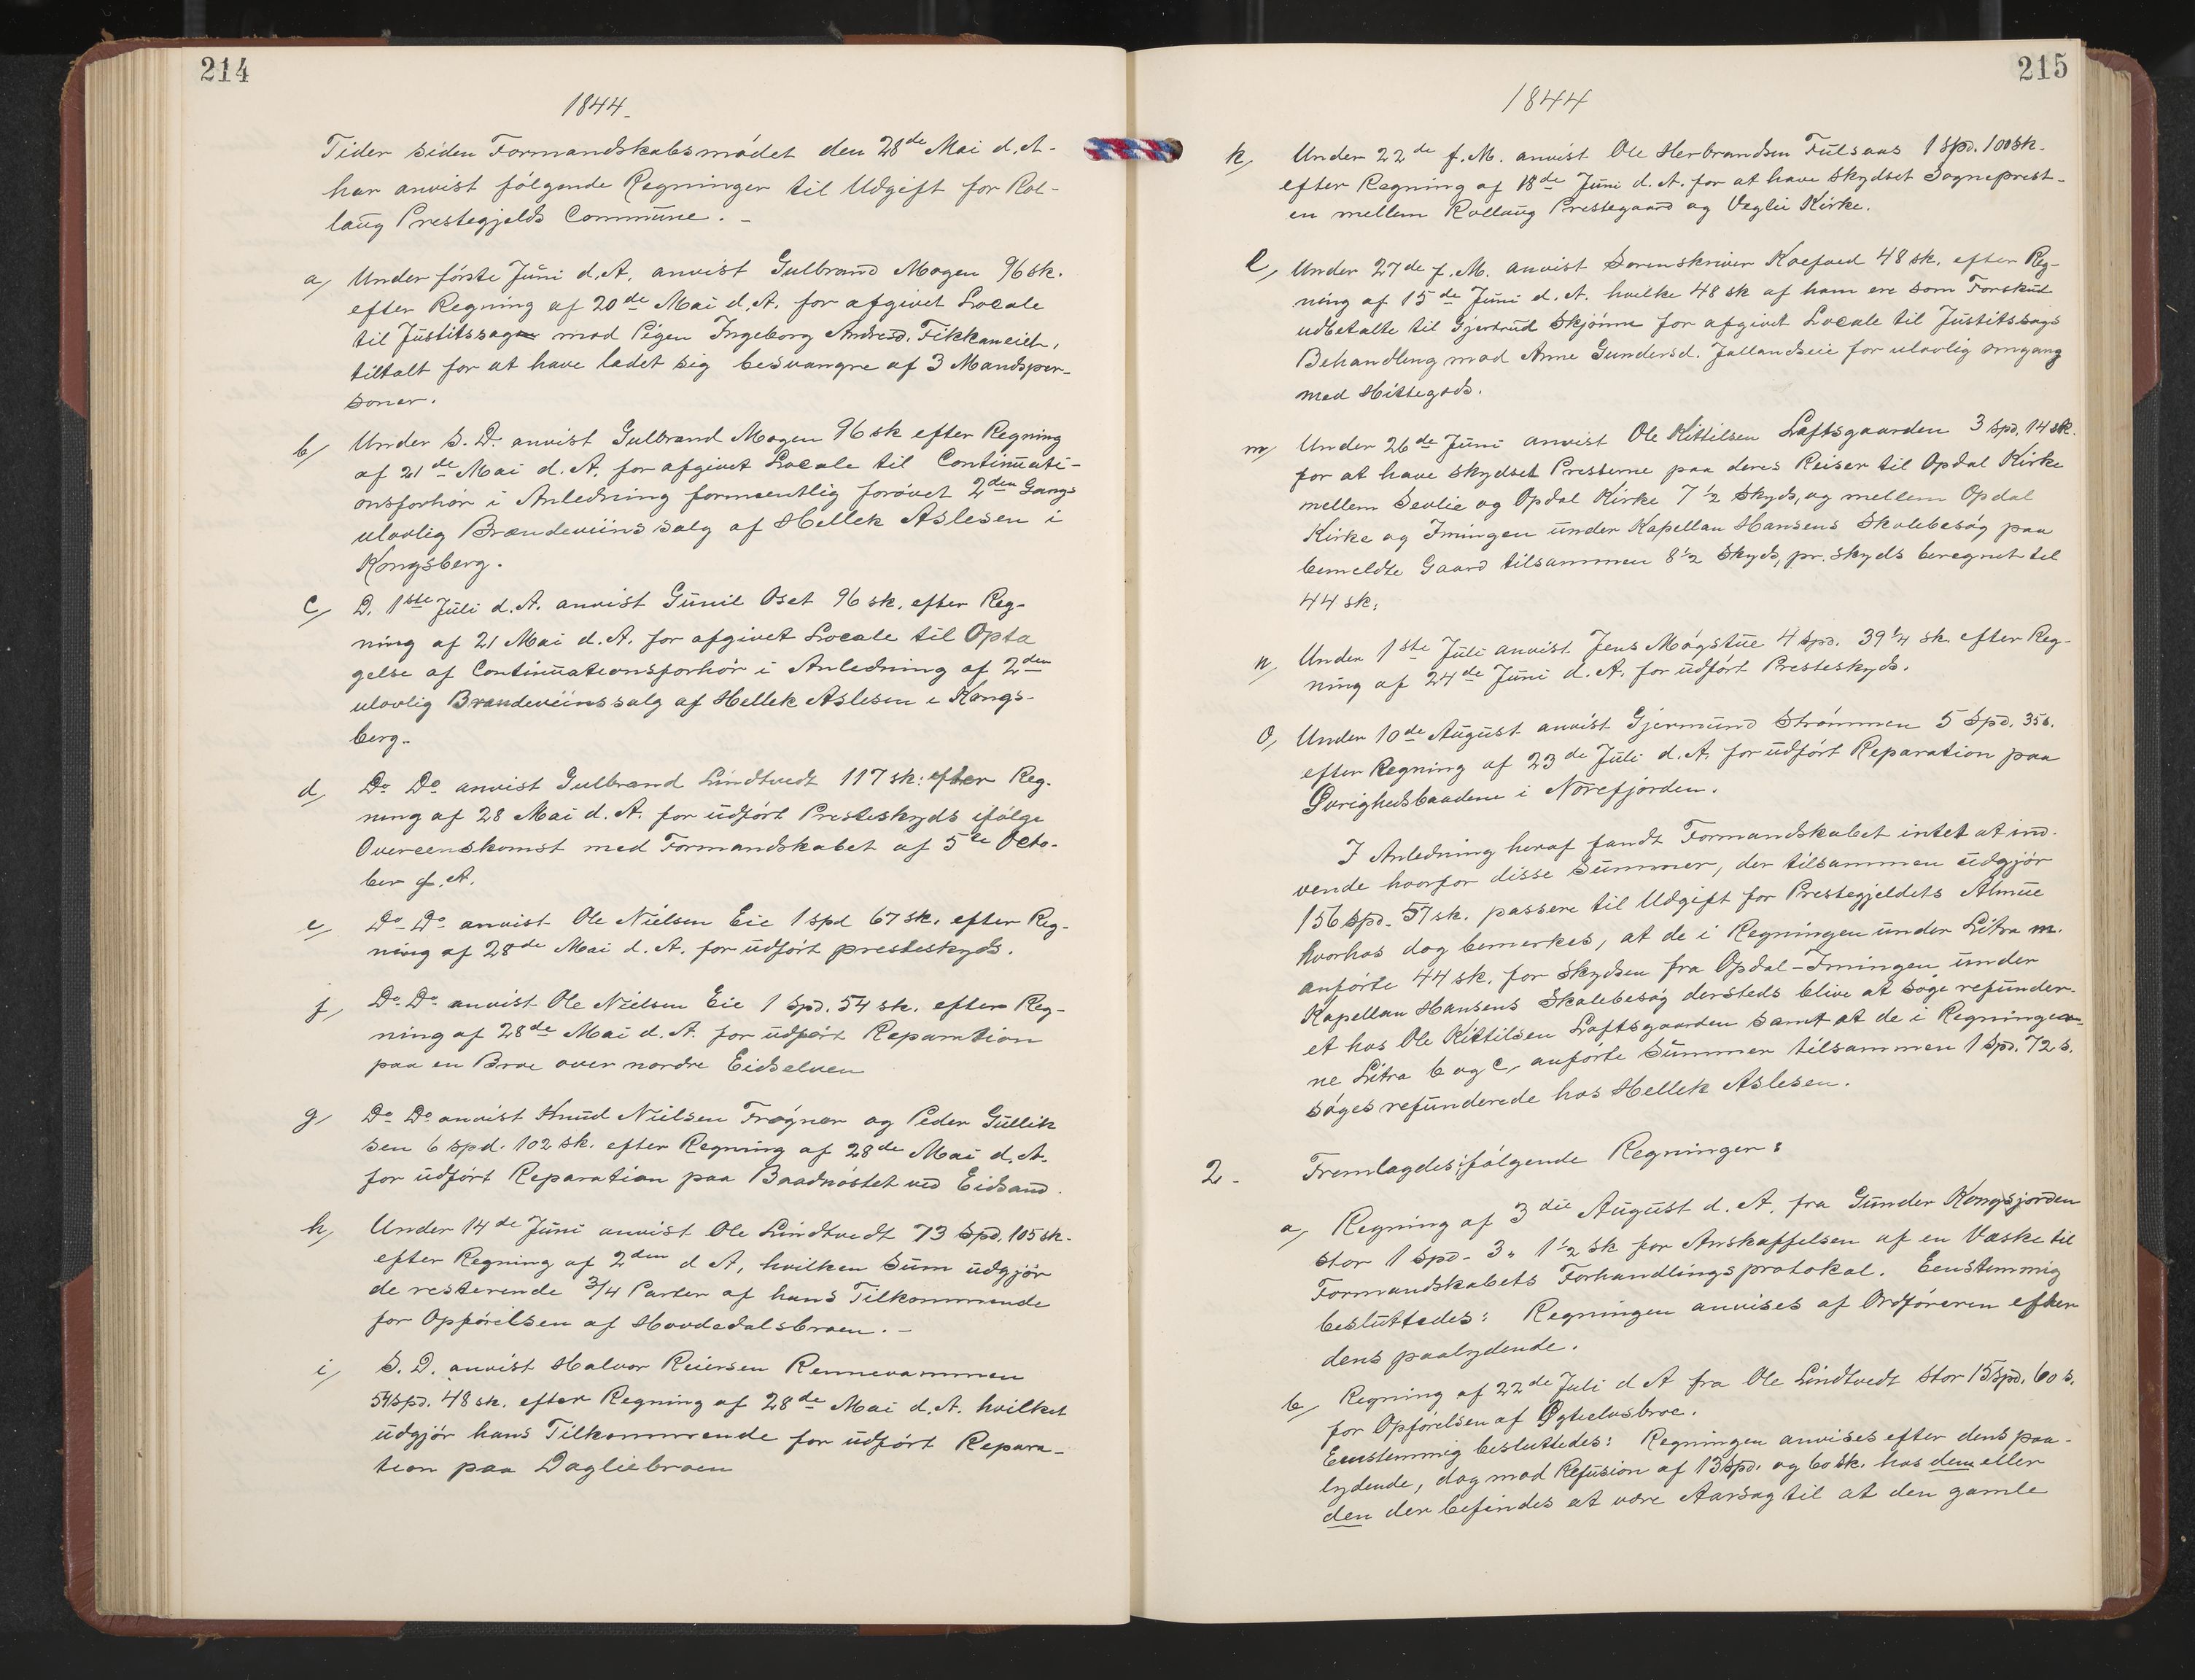 214
1844.
Tider siden Formandskabsmødet den 28de Mai d. A.
har anvist følgende Regninger til Udgift for Rol-
laug Prestegjelds Commune. -
a/ Under første Juni d. A. anvist Gulbrand Mogen 96 sk.
efter Regning af 20de Mai d. A. for afgivet Locale
til Justitssag mod Pigen Ingeborg Andresd. Fikkaneiet,
tiltalt for at have ladet sig besvangre af 3 Mandsper-
soner.
b/ Under S. D. anvist Gulbrand Mogen 96 sk efter Regning
af 21de Mai d. A. for afgivet Locale til Continuati-
onsforhör i Anledning formeentlig forövet 2den Gangs
ulovlig Brændeviinssalg af Hellek Aslesen i
Kongsberg.
c/ D. 1ste Juli d. A. anvist Gunil Oset 96 sk. efter Reg-
ning af 21 Mai d. A. for afgivet Locale til Opta
gelse af Continuationsforhör i Anledning af 2den
ulovlig Brændeviinssalg af Hellek Aslesen i Kongs-
berg.
d/ Do Do anvist Gulbrand Lindtvedt 117 sk: efter Reg-
ning af 28 Mai d. A. for udfört Presteskyds ifölge
Overeenskomst med Formandskabet af 5te Octo-
ber f. A.
e/ Do Do anvist Ole Nielsen Eie 1 spd 67 sk. efter Reg-
ning af 28de Mai d. A. for udfört presteskyds.
f/ Do Do anvist Ole Nielsen Eie 1 Spd. 54 sk. efter Reg-
ning af 28de Mai d. A. for udfört Reparation
paa en Broe over nordre Eidselven
g/ Do Do anvist Knud Nielsen Frögner og Peder Gullik
sen 6 spd. 102 sk. efter Regning af 28de Mai d. A.
for udfört Reparation paa Baadnöstet ved Eidsand.
h/ Under 14de Juni anvist Ole Lindtvedt 73 Spd. 105 sk.
efter Regning af 2den d A, hvilken Sum udgjör
de resterende 3/4 Parter af hans Tilkommende
for Opförelsen af Hovdedalsbroen. -
i/ S. D. anvist Halvor Reiersen Rennevammen
54 spd. 48 sk. efter Regning af 28de Mai d. A. hvilket
udgjör hans Tilkommende for udfört Repara-
tion paa Dagliebroen
215
1844
k/ Under 22de f. M. anvist Ole Herbrandsen Fulsaas 1 Spd. 100 sk.
efter Regning af 18de Juni d. A. for at have Skydset Sogneprest-
en mellem Rollaug Prestegaard og Veglie Kirke.
l/ Under 27de f. M. anvist Sorenskriver Koefoed 48 sk. efter Reg-
ning af 15de Juni d. A. hvilke 48 sk af ham ere som Forskud
udbetalte til Gjertrud Skjönne for afgivet Locale til Justitssags
Behandling mod Anne Gundersd. Jallandseie for ulovlig omgang
med Hittegods.
m/ Under 26de Juni anvist Ole Kittilsen Loftsgaarden 3 Spd. 14 sk.
for at have skydset Presterne paa deres Reiser til Opdal Kirke
mellem Sevlie og Opdal Kirke 7 1/2 Skyds, og mellem Opdal
Kirke og Imingen under Kapellan Hansens Skolebesög paa
bemeldte Gaard tilsammen 8 1/2 Skyds, pr. skyds beregnet til
44 sk:
n/ Under 1ste Juli anvist Jens Mogstue 4 Spd. 39 1/4 sk. efter Reg-
ning af 24de Juni d. A. for udfört Presteskyds.
o/ Under 10de August anvist Gjermund Strömmen 5 Spd. 35 s.
efter Regning af 23de Juli d. A. for udfört Reparation paa
Övrighedsbaadene i Norefjorden.
I Anledning heraf fandt Formandskabet intet at ind-
vende hvorfor disse Summer, der tilsammen udgjör
156 Spd. 57 sk. passere til Udgift for Prestegjeldets Almue
hvorhos dog bemerkes, at de i Regningen under Litra m.
anförte 44 sk. for skydsen fra Opdal-Imingen under
Kapellan Hansens Skolebesög dersteds blive at söge refunder-
et hos Ole Kittilsen Loftsgaarden samt at de i Regninger-
ne Litra b og c, anförte Summer tilsammen 1 Spd. 72 s.
söges refunderede hos Hellek Aslesen.
2. Fremlagdes fölgende Regninger:
a/ Regning af 3die August d. A. fra Gunder Kongsjorden
stor 1 Spd - 3 " 1 1/2 sk for Anskaffelsen af en Væske til
Formandskabets Forhandlingsprotokol. Eenstemmig
besluttedes: Regningen anvises af Ordföreren efter
dens paalydende.
b/ Regning af 22de Juli d A fra Ole Lindtvedt stor 15 spd. 60 s.
for Opförelsen af Ögteelvsbroe.
Eenstemmig besluttedes: Regningen anvises efter dens paa-
lydende, dog mod Refusion af 13 Spd. og 60 sk. hos dem eller
den der befindes at være Aarsag til at den gamle